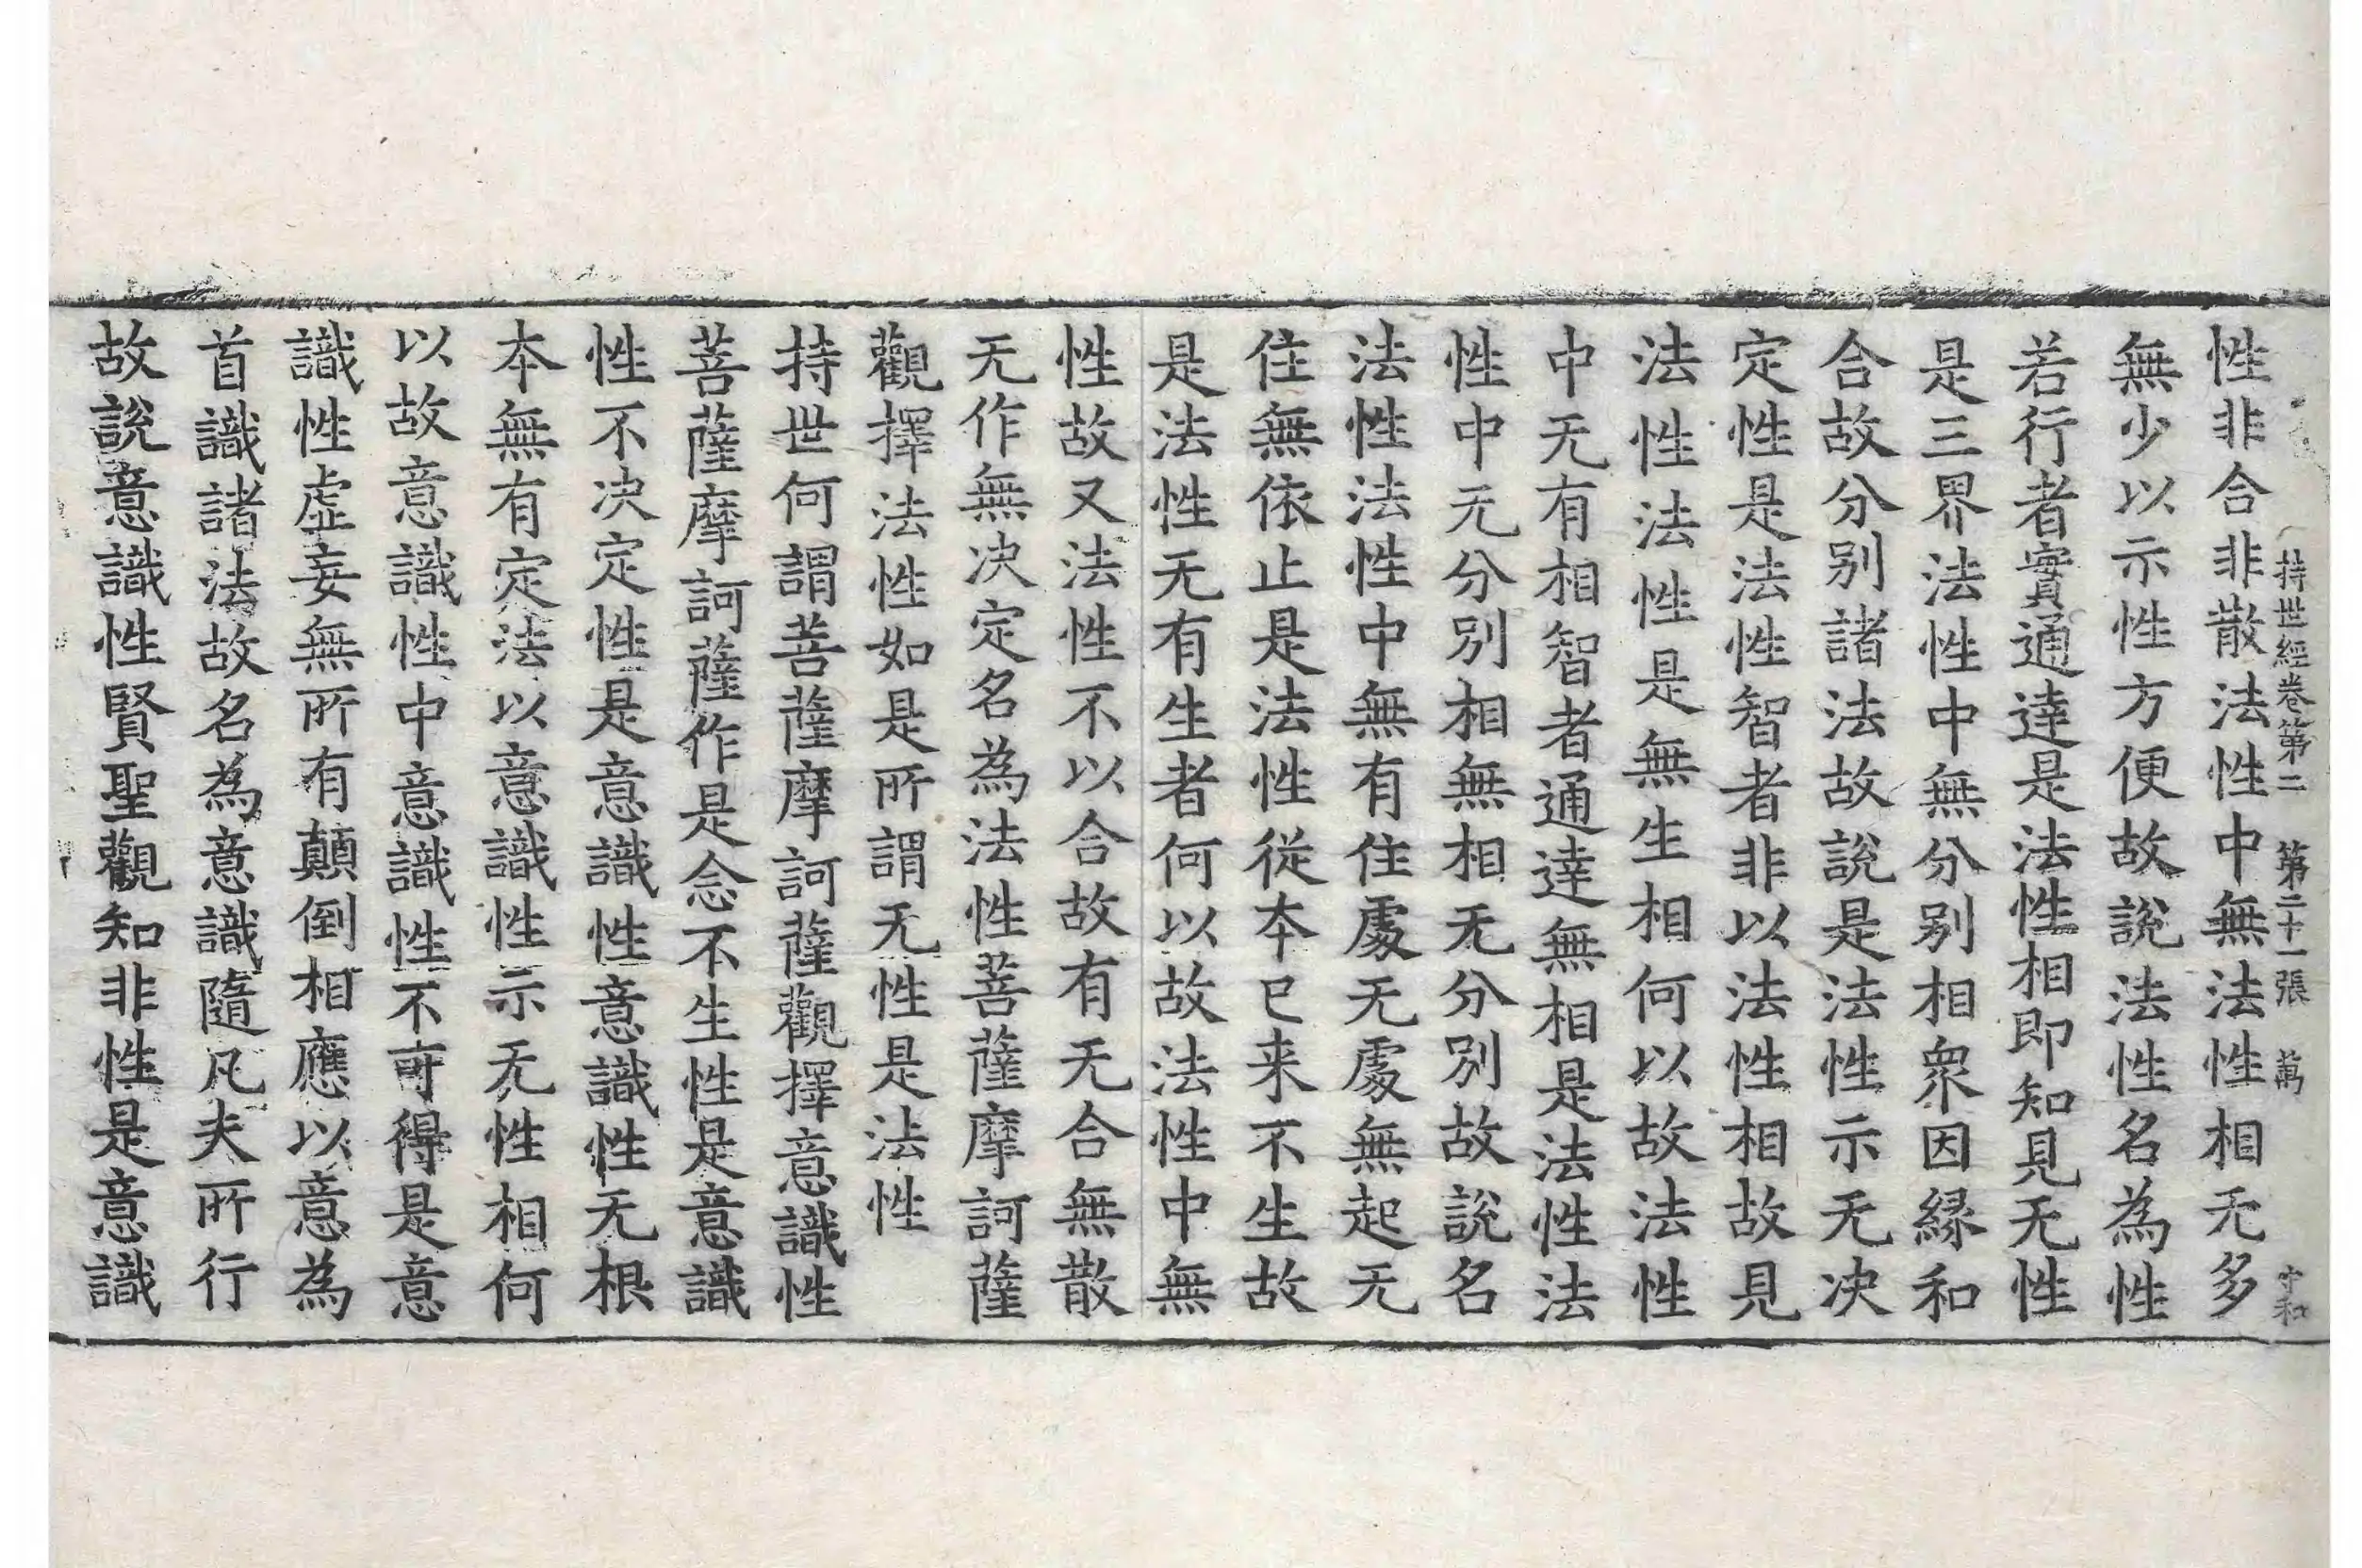 持世經卷第二 第二十一張 萬 守和
性非合非散法性中無法性相无多
無少以示性方便故說法性名為性
若行者實通達是法性相即知見无性
是三界法性中無分別相衆因緣和
合故分別諸法故說是法性示无决
定性是法性智者非以法性相故見
法性法性是無生相何以故法性
中无有相智者通達無相是法性法
性中无分別相無相无分別故說名
法性法性中無有住處无處無起无
住無依止是法性從本已来不生故
是法性无有生者何以故法性中無
性故又法性不以合故有无合無散
无作無决定名為法性菩薩摩訶薩
觀擇法性如是所謂无性是法性
持世何謂菩薩摩訶薩觀擇意識性
菩薩摩訶薩作是念不生性是意識
性不决定性是意識性意識性无根
本無有定法以意識性示无性相何
以故意識性中意識性不可得是意
識性虛妄無所有顛倒相應以意為
首識諸法故名為意識隨凡夫所行
故說意識性賢聖觀知非性是意識